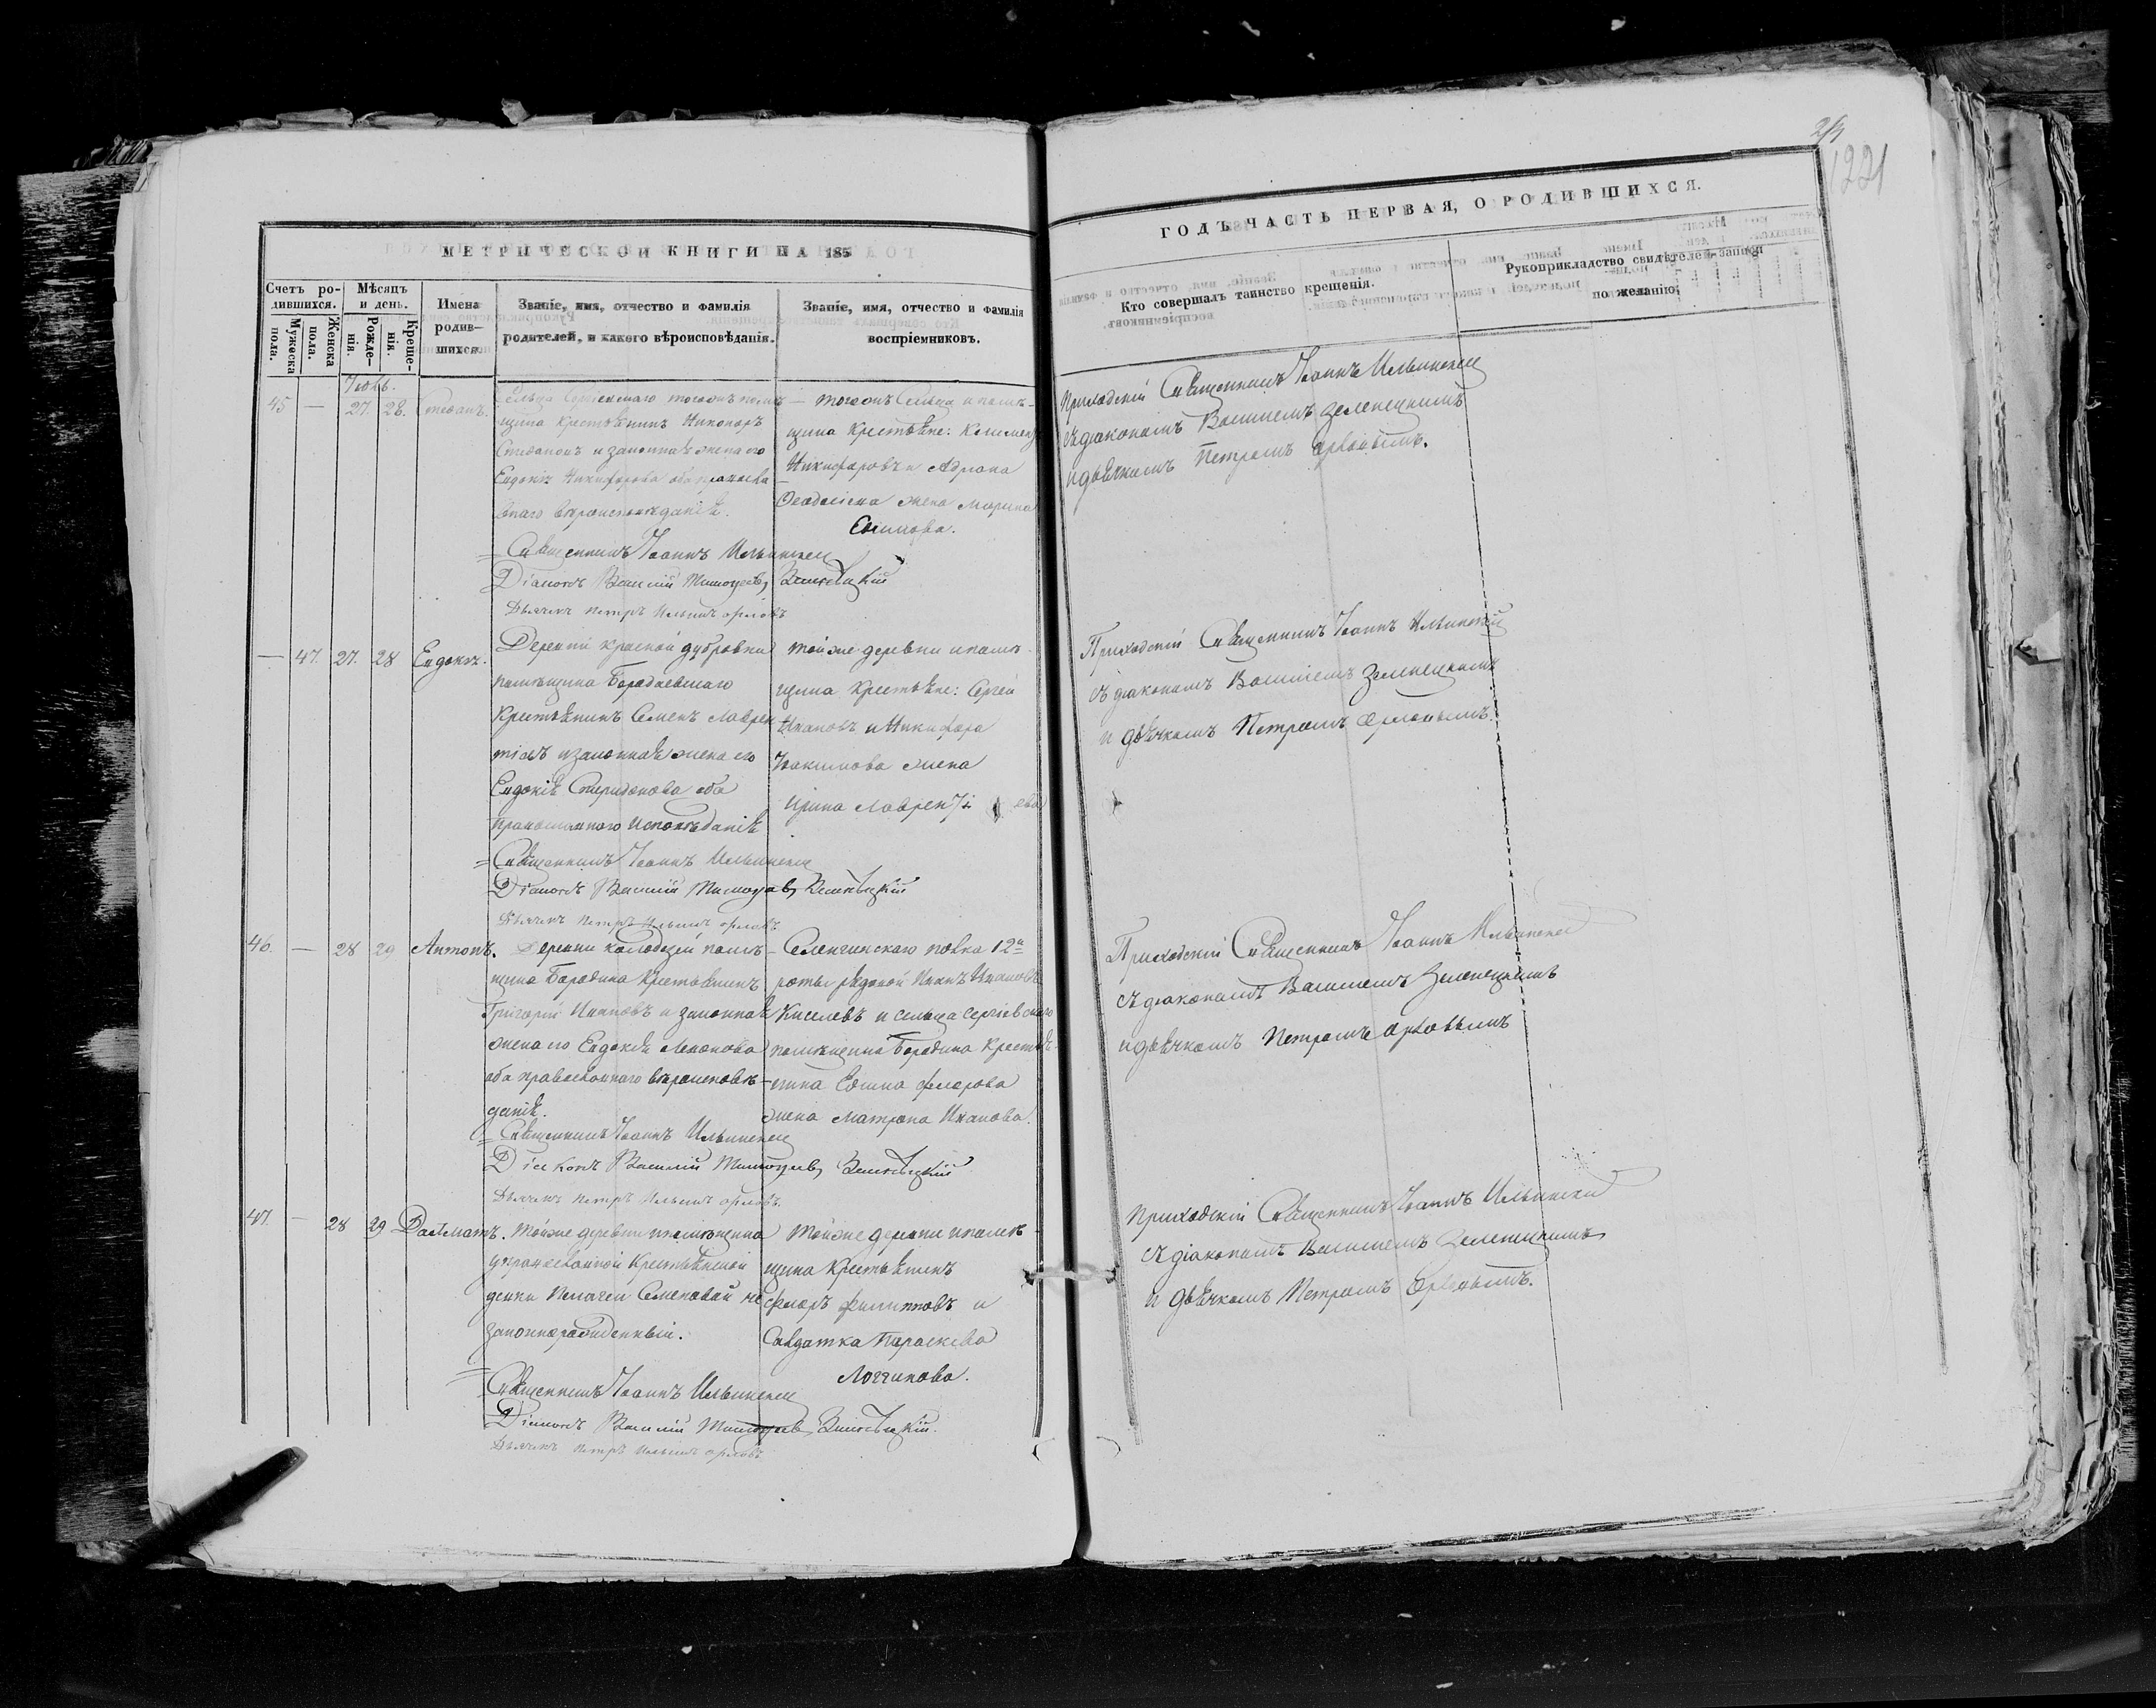 МЕТРИЧЕСКОЙ КНИГИ НА 185
Счетъ родившихся.
Мѣсяцъ и день.
Имена родившихся.
Званіе, имя, отчество и фамилія родителей, и какого вѣроисповѣданія.
Званіе, имя, отчество и фамилія воспріемниковъ.
Мужеска пола.
Женска пола.
Рожденія.
Крещенія.
Іюль.
45 — 27. 28. Стефанъ.
Крестьянинъ Никоноръ
Стефановъ и законная жена его
Евдокія Никифорова оба православ
наго вѣроисповѣданія.
тогожъ Сельца и помѣ-
щика Крестьяне: Климентъ
Никифоровъ и Адріана
Феодосіева жена Марина
Ефимова.
Священникъ Іоаннъ Ильинскій
Діаконъ Василій Тимофеевъ Зеленецкій
Дьячекъ Петръ Ильинъ Орловъ
— 47. 27. 28 Евдокія.
Деревни Красной дубровки
помѣщика Бородаевскаго
Крестьянинъ Семенъ Лаврен
тіевъ и законная жена его
Евдокія Спиридонова оба
православнаго исповѣданія
тойже деревни и помѣ-
щика Крестьяне: Сергей
Ивановъ и Никифора
Іоакимова жена
Ирина Лаврентіева
Священникъ Іоаннъ Ильинскій
Діаконъ Василій Тимофеевъ Зеленецкій
Дьячекъ Петръ Ильинъ Орловъ
46. — 28 29 Антонъ.
Деревни Колодезей помѣ-
щика Бородина Крестьянинъ
Григорій Ивановъ и законная
жена его Евдокія
оба православнаго вѣроисповѣ-
данія.
Селенгинскаго полка 12й
роты рядовой Иванъ Ивановъ
Киселевъ и сельца Сергіевскаго
помѣщика Бородина Крестья-
нина Ефима Флорова
жена Матрона Иванова.
Священникъ Іоаннъ Ильинскій
Діаконъ Василій Тимофеевъ Зеленецкій
Дьячекъ Петръ Ильинъ Орловъ.
47. — 28 29 Далматъ.
Тойже деревни и помѣщика
Крестьянской
девки Пелагеи Семеновой не
законнорожденный.
Тойже деревни и помѣ-
щика Крестьянинъ
Флоръ Филипповъ и
Солдатка Параскева
Логгинова.
Священникъ Іоаннъ Ильинскій
Діаконъ Василій Тимофеевъ Зеленецкій.
Дьячекъ Петръ Ильинъ Орловъ
1221
ГОДЪ ЧАСТЬ ПЕРВАЯ, О РОДИВШИХСЯ.
Кто совершалъ таинство крещенія.
Рукоприкладство свидѣтелей записи по желанію.
Приходскій Священникъ Іоаннъ Ильинскій
съ діакономъ Василіемъ Зеленецкимъ
и дьячкомъ Петромъ Орловымъ.
Приходскій Священникъ Іоаннъ Ильинскій
съ діакономъ Василіемъ Зеленецкимъ
и дьячкомъ Петромъ Орловымъ.
Приходскій Священникъ Іоаннъ Ильинскій
съ діакономъ Василіемъ Зеленецкимъ
и дьячкомъ Петромъ Орловымъ
Приходскій Священникъ Іоаннъ Ильинскій
съ діакономъ Василіемъ Зеленецкимъ
и дьячкомъ Петромъ Орловымъ.